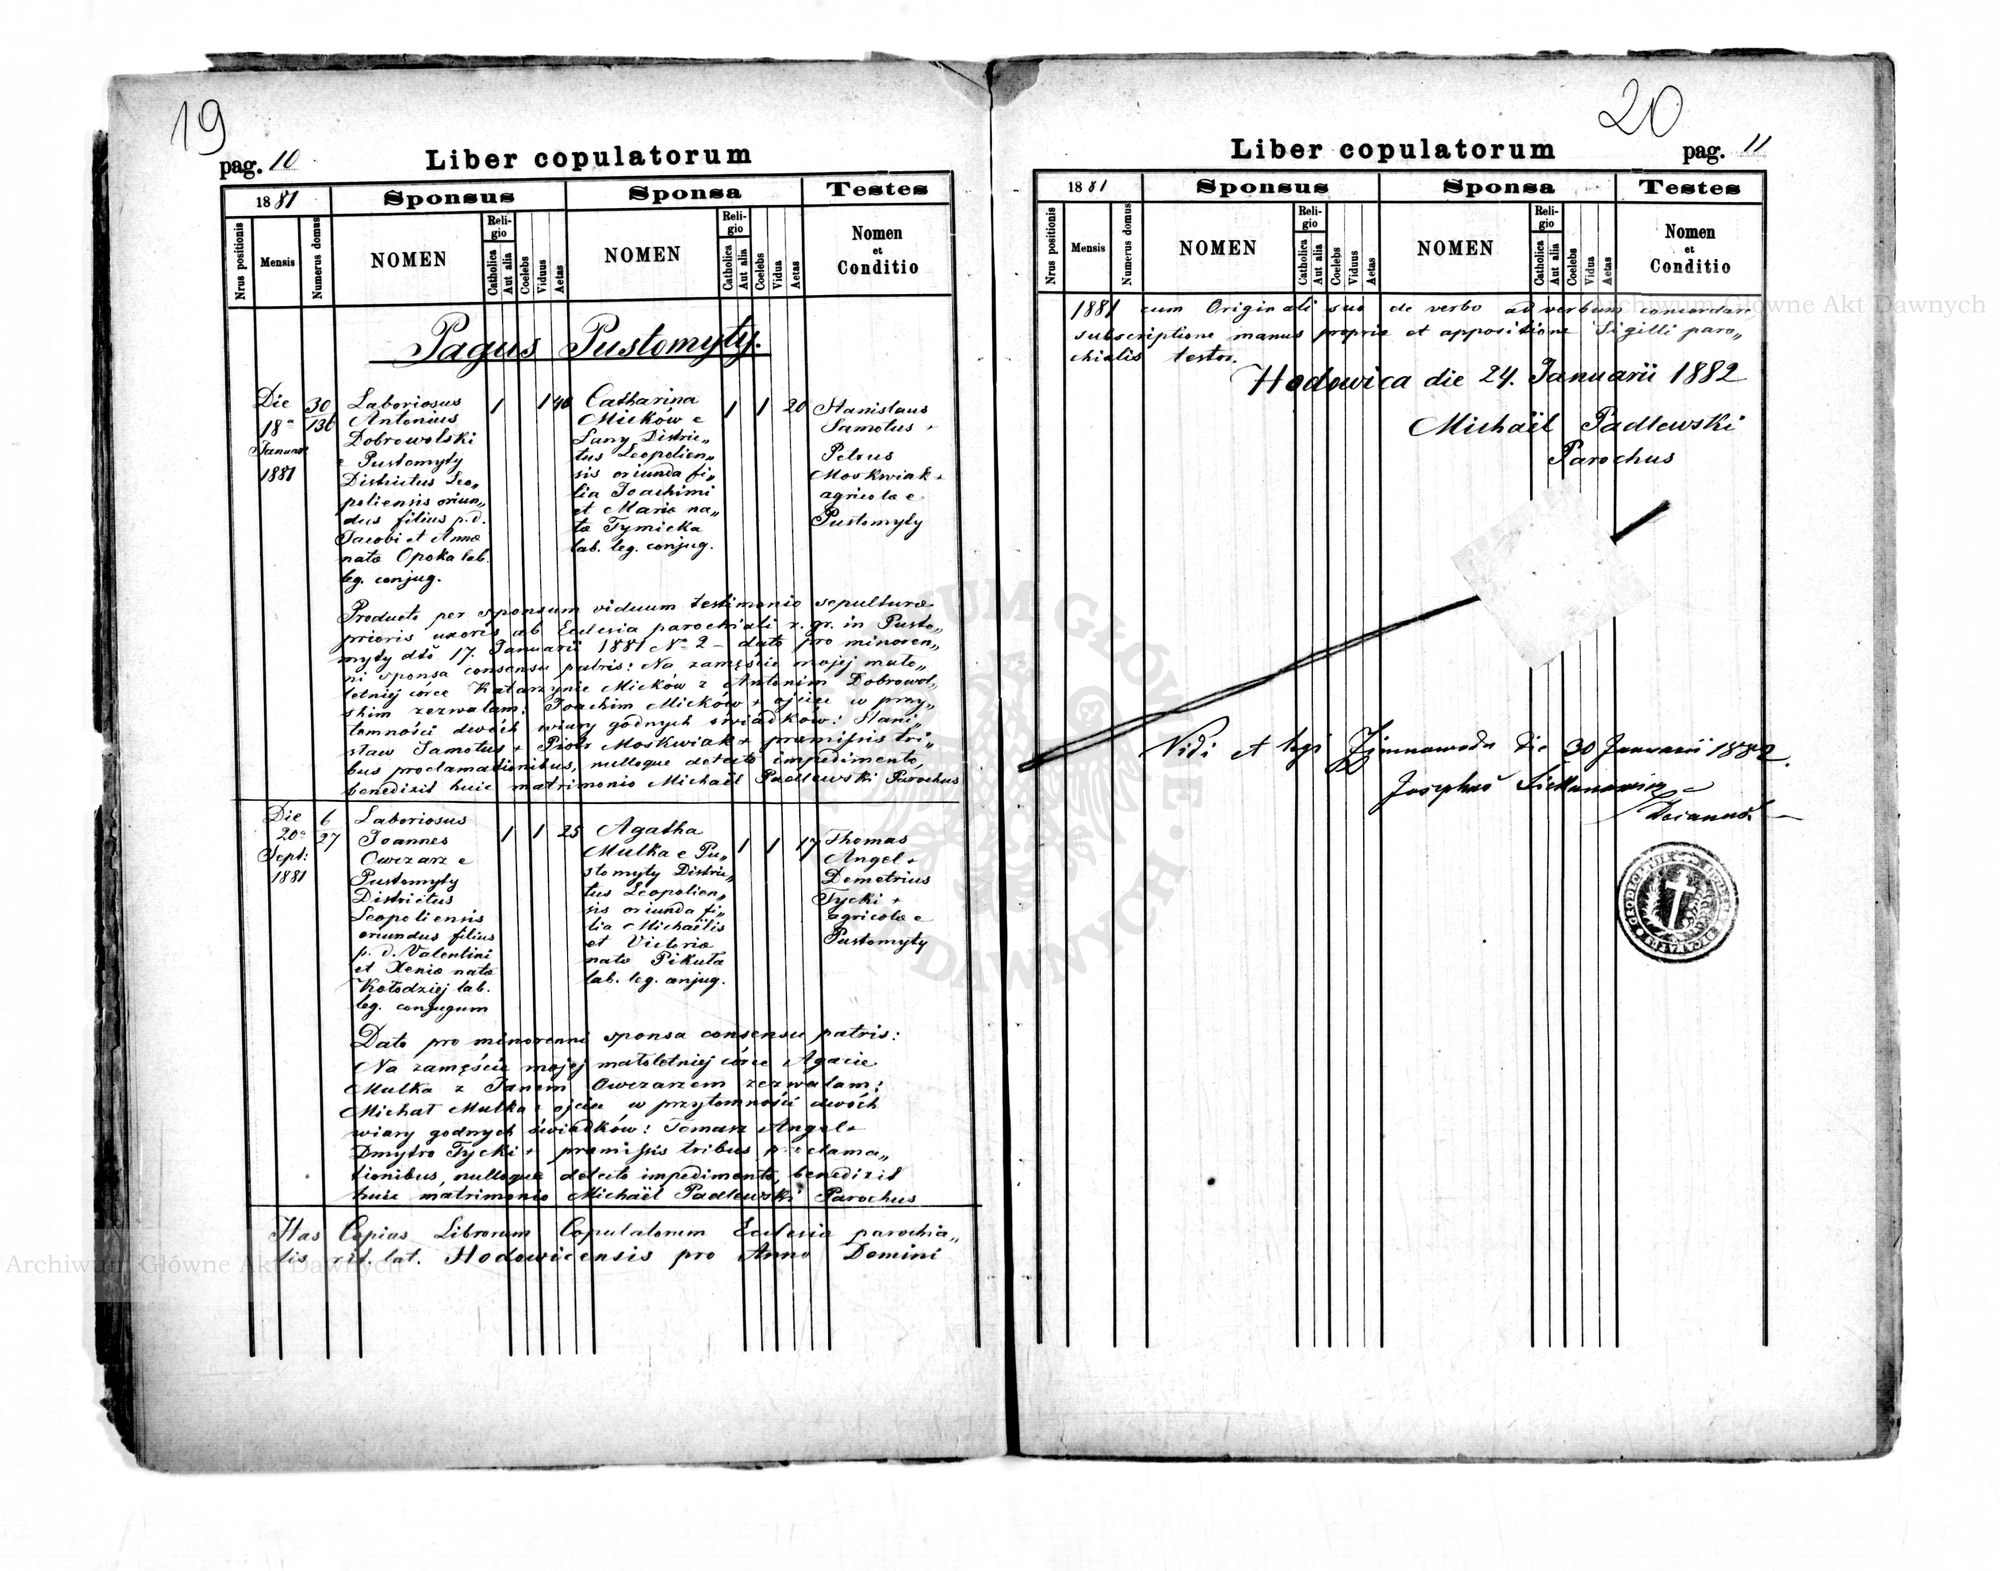 19
pag. 10
Liber copulatorum
1881
Sponsus
Sponsa
Testes
Nrus positionis
Mensis
Numerus domus
NOMEN
Religio
Catholica
Aut alia
Coelebs
Viduus
Aetas
NOMEN
Religio
Catholica
Aut alia
Coelebs
Vidua
Aetas
Nomen
et
Conditio
Pagus Pustomyty.
Die
18a
Januar:
1881
30
136
Laboriosus
Antonius
Dobrowolski
e Pustomyty
Districtus Leo„
poliensis oriun„
dus filius p. d.
Jacobi et Annæ
natæ Opoka lab.
leg. conjug.
1
1
40
Catharina
Mićków e
Łany Distric„
tus Leopolien„
sis oriunda fi„
lia Joachimi
et Mariæ na„
tæ Tymicka
lab. leg. conjug.
1
1
20
Stanislaus
Samotus +
Petrus
Moskwiak +
agricolæ e
Pustomyty
Producto per sponsum viduum testimonio sepulturæ
prioris uxoris ab Ecclesia parochiali r. gr. in Pusto„
myty dto 17. Januarii 1881 No 2 – dato pro minoren„
ni sponsa consensu patris: Na zamęście mojej mało„
letniej córce Katarzynie Mićków z Antonim Dobrowol„
skim zezwalam: Joachim Mićków + ojciec w przy„
tomności dwóch wiary godnych świadków: Stani„
sław Samotus + Piotr Moskwiak + præmissis tri„
bus proclamationibus, nulloque detecto impedimento,
benedixit huic matrimonio Michaël Padlewski Parochus
Die
20a
Sept:
1881
6
27
Laboriosus
Joannes
Owczarz e
Pustomyty
Districtus
Leopoliensis
oriundus filius
p. d. Valentini
et Xeniæ natæ
Kołodziej lab.
leg. conjugum
1
1
25
Agatha
Mulka e Pu„
stomyty Distric„
tus Leopolien„
sis oriunda fi„
lia Michaëlis
et Victoriæ
natæ Pikuła
lab. leg. conjug.
1
1
17
Thomas
Angel +
Demetrius
Tycki +
agricolæ e
Pustomyty
Dato pro minorenni sponsa consensu patris:
Na zamęście mojej małoletniej córce Agacie
Mulka z Janem Owczarzem zezwalam:
Michał Mulka + ojciec w przytomności dwóch
wiary godnych świadków: Tomasz Angel +
Dmytro Tycki + præmissis tribus proclama„
tionibus, nulloque detecto impedimento, benedixit
huic matrimonio Michaël Padlewski Parochus
Has Copias Librorum Copulatorum Ecclesiæ parochia„
lis rit. lat. Hodowicensis pro Anno Domini
20
Liber copulatorum
pag. 11
1881
Sponsus
Sponsa
Testes
Nrus positionis
Mensis
Numerus domus
NOMEN
Religio
Catholica
Aut alia
Coelebs
Viduus
Aetas
NOMEN
Religio
Catholica
Aut alia
Coelebs
Vidua
Aetas
Nomen
et
Conditio
1881 cum Originali suo de verbo ad verbum concordare,
subscriptione manus propriæ et appositione Sigilli paro„
chialis testor.
Hodowica die 24. Januarii 1882
Michaël Padlewski
Parochus
Vidi et legi Zimnawoda die 30 Januarii 1882.
Josephus
Decanus
Archiwum Główne Akt Dawnych
Archiwum Główne Akt Dawnych